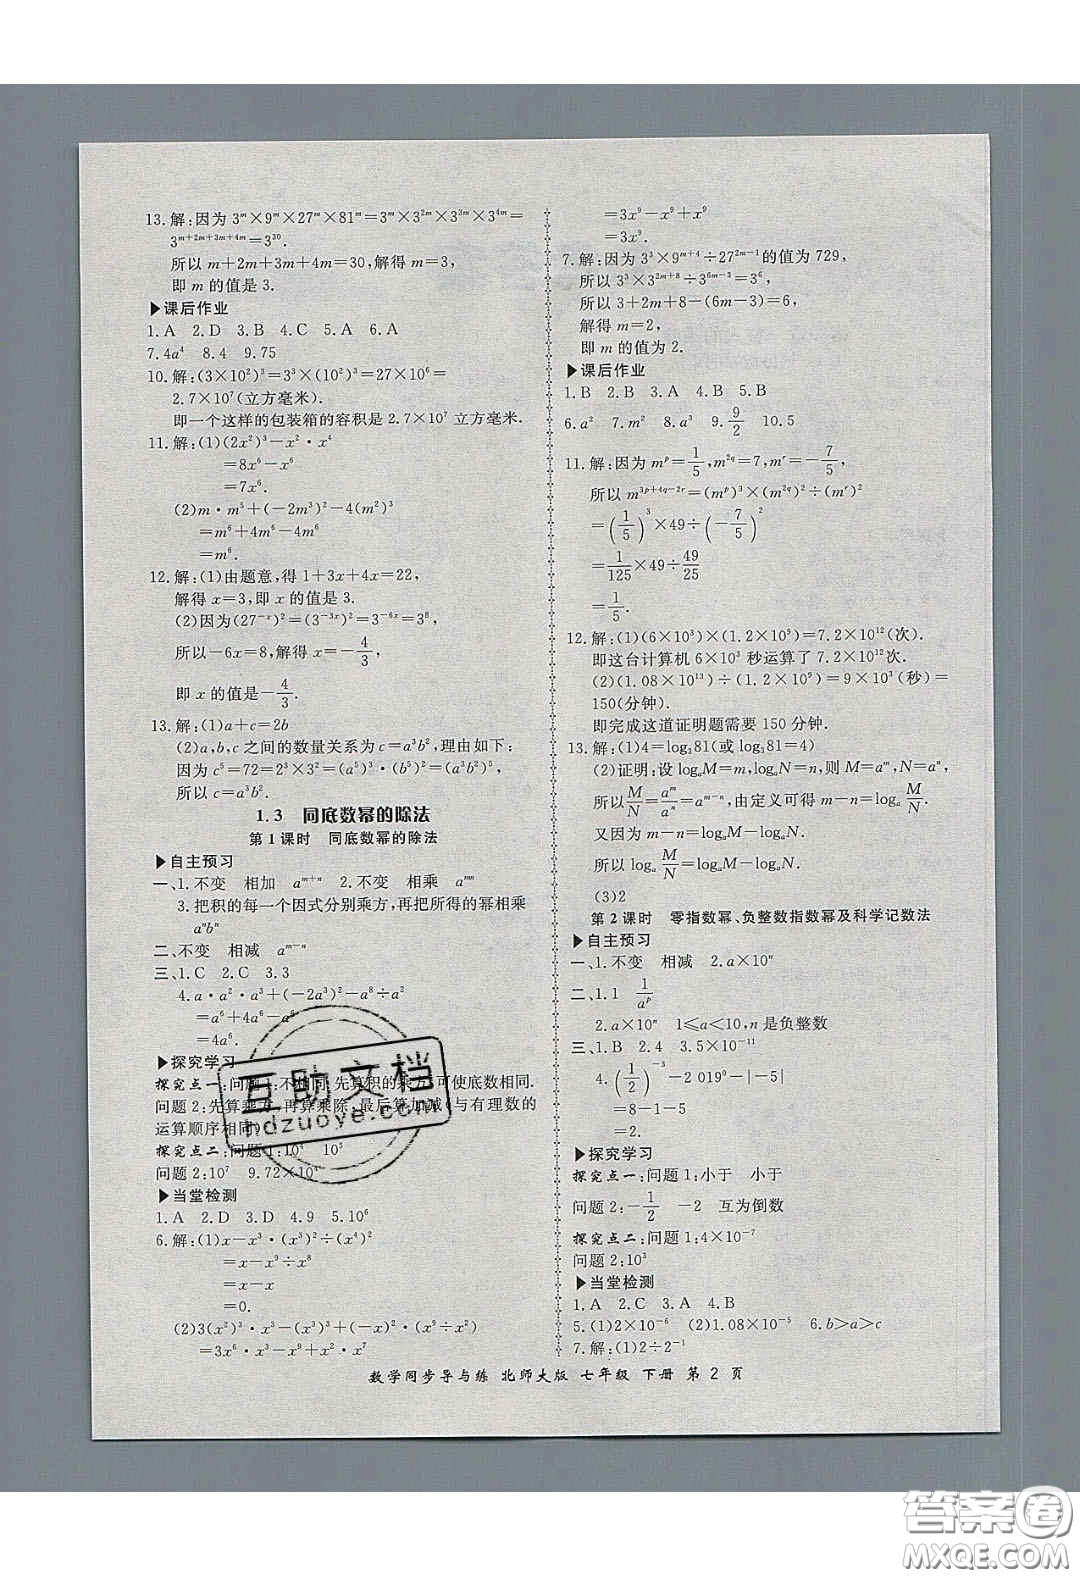 13.解:因为3^m×9^m×27^m×81^m=3^m×3^{2m}×3^{3m}×3^{4m}=
3^{m+2m+3m+4m}=3^{30}.
所以m+2m+3m+4m=30,解得m=3,
即m的值是3.
▶课后作业
1.A 2.D 3.B 4.C 5.A 6.A
7.4a^4 8.4 9.75
10.解:(3×10^2)^3=3^3×(10^2)^3=27×10^6=
2.7×10^7(立方毫米).
即一个这样的包装箱的容积是2.7×10^7立方毫米.
11.解:(1)(2x^2)^3-x^2·x^4
=8x^6-x^6
=7x^6.
(2)m·m^5+(-2m^3)^2-4(m^2)^3
=m^6+4m^6-4m^6
=m^6.
12.解:(1)由题意,得1+3x+4x=22,
解得x=3,即x的值是3.
(2)因为(27^{-x})^2=(3^{-3x})^2=3^{-6x}=3^8
所以-6x=8,解得x=-4/3,
即x的值是-4/3.
13.解:(1)a+c=2b
(2)a,b,c之间的数量关系为c=a^3b^2,理由如下:
因为c^5=72=2^3×3^2=(a^5)^3·(b^5)^2=(a^3b^2)^5,
所以c=a^3b^2.
1.3 同底数幂的除法
第1课时 同底数幂的除法
▶自主预习
一、1.不变 相加 a^{m+n} 2.不变 相乘 a^{mn}
3.把积的每一个因式分别乘方,再把所得的幂相乘
a^nb^n
二、不变 相减 a^{m-n}
三、1.C 2.C 3.3
4.a·a^2·a^3+(-2a^3)^2-a^8÷a^2
=a^6+4a^6-a^6
=4a^6.
▶探究学习
探究点一:问题1:不相同 先算积的乘方 可使底数相同.
问题2:先算乘方,再算乘除,最后算加减 与有理数的
运算顺序相同.
探究点二:问题1:10^4 10^5
问题2:10^7 9.72×10^4
▶当堂检测
1.A 2.D 3.D 4.9 5.10^6
6.解:(1)x-x^3·(x^3)^2÷(x^4)^2
=x-x^9÷x^8
=x-x
=0.
(2)3(x^2)^3·x^3-(x^3)^3+(-x)^2·x^9÷x^2
=3x^6·x^3-x^9+x^2·x^7
=3x^9-x^9+x^9
=3x^9.
7.解:因为3^3×9^{m+4}÷27^{2m-1}的值为729,
所以3^3×3^{2m+8}÷3^{6m-3}=3^6,
所以3+2m+8-(6m-3)=6,
解得m=2,
即m的值为2.
▶课后作业
1.B 2.B 3.A 4.B 5.B
6.a^2 7.m^2 8.a^3 9.9/2 10.5
11.解:因为m^p=1/5,m^{2q}=7,m^r=-7/5,
所以m^{3p+4q-2r}=(m^p)^3×(m^{2q})^2÷(m^r)^2
=(1/5)^3×49÷(-7/5)^2
=1/125×49÷49/25
=1/5.
12.解:(1)(6×10^3)×(1.2×10^9)=7.2×10^{12}(次).
即这台计算机6×10^3秒运算了7.2×10^{12}次.
(2)(1.08×10^{13})÷(1.2×10^9)=9×10^3(秒)=
150(分钟).
即完成这道证明题需要150分钟.
13.解:(1)4=log_3 81(或log_3 81=4)
(2)证明:设log_a M=m,log_a N=n,则M=a^m,N=a^n,
所以M/N=a^m/a^n=a^{m-n},由定义可得m-n=log_a M/N.
又因为m-n=log_a M-log_a N.
所以log_a M/N=log_a M-log_a N.
(3)2
第2课时 零指数幂、负整数指数幂及科学记数法
▶自主预习
一、1.不变 相减 2.a×10^n
二、1.1 1/a^p
2.a×10^n 1≤a<10,n是负整数
三、1.B 2.4 3.5×10^{-11}
4.(1/2)^{-3}-2 019^0-|-5|
=8-1-5
=2.
▶探究学习
探究点一:问题1:小于 小于
问题2:-1/2 -2 互为倒数
探究点二:问题1:4×10^{-7}
问题2:10^3
▶当堂检测
1.A 2.C 3.A 4.B
5.(1)2×10^{-6} (2)1.08×10^{-5} 6.b>a>c
7.解:(1)2÷2^{-1}
数学同步导与练 北师大版 七年级 下册 第2页
互助文档
hdzuoye.com
答案圈
MXQE.COM